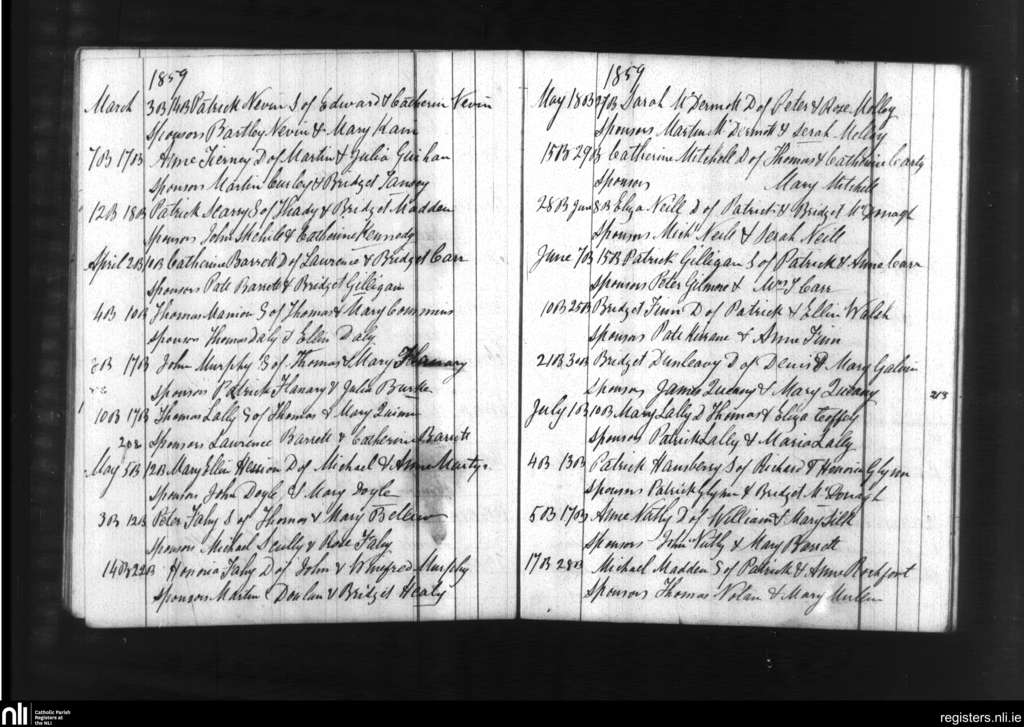 1859
March 3B 14B Patrick Nevin S of Edward & Catherin Nevin
Sponsors Bartley Nevin & Mary Kain
7B 17B Anne Tierney D of Martin & Julia Guihan
Sponsors Martin Curley & Bridget Tansey
12B 18B Patrick Scarry S of Thady & Bridget Madden
Sponsors John Skehill & Catherine Kennedy
April 2B 10B Catherine Barrett D of Laurence & Bridget Carr
Sponsors Patt Barrett & Bridget Gilligan
4B 10B Thomas Manion S of Thomas & Mary Commins
sponsors Thomas Daly & Ellin Daly
17B John Murphy S of Thomas & Mary Flanary
sponsors Patrick Flanary & Julia Burke
10B 17B Thomas Lally S of Thomas & Mary Quinn
202 Sponsors Laurence Barrett & Catherin Barrett
May 5B 12B Mary Ellin Hession D of Michael & Anne
Sponsors John Doyle & Mary Doyle
3B 12B Peter Fahy S of Thomas & Mary
Sponsors Michael Scully & Rose Fahy
14B 22B Honoria Fahy D of John & Winefred Murphy
Sponsors Martin Donlan & Bridget Healy
1859
May 18B 27B Sarah McDermott D of Peter & Rose Molloy
Sponsors Martin McDermott & Serah Molloy
15B 29B Catherine Mitchell D of Thomas & Catherine
Sponsors Mary Mitchell
28B June 8B Eliza Neill D of Patrick & Bridget McDonagh
Sponsors Michl Neill & Serah Neill
June 7B 15B Patrick Gilligan S of Patrick & Anne Carr
Sponsors Peter Gilmore & Carr
10B 25B Bridget Finn D of Patrick & Ellin Walsh
Sponsors Patt Kerrane & Anne Finn
21B 30B Bridget Dunleavy D of Denis & Mary Galvin
Sponsors James & Mary
213
July 1B 10B Mary Lally D Thomas & Eliza Coffey
Sponsors Patrick Lally & Maria Lally
4B 13B Patrick Hansberry S of Richard & Honoria Glynn
Sponsors Patrick Glynn & Bridget McDonagh
5B 17B Anne Nathy D of William & Mary Silk
Sponsors John Nathy & Mary Barrett
17B 28B Michael Madden S of Patrick & Anne Rochfort
Sponsors Thomas Nolan & Mary Mullin
nli Catholic Parish
Registers at
the NLI
registers.nli.ie